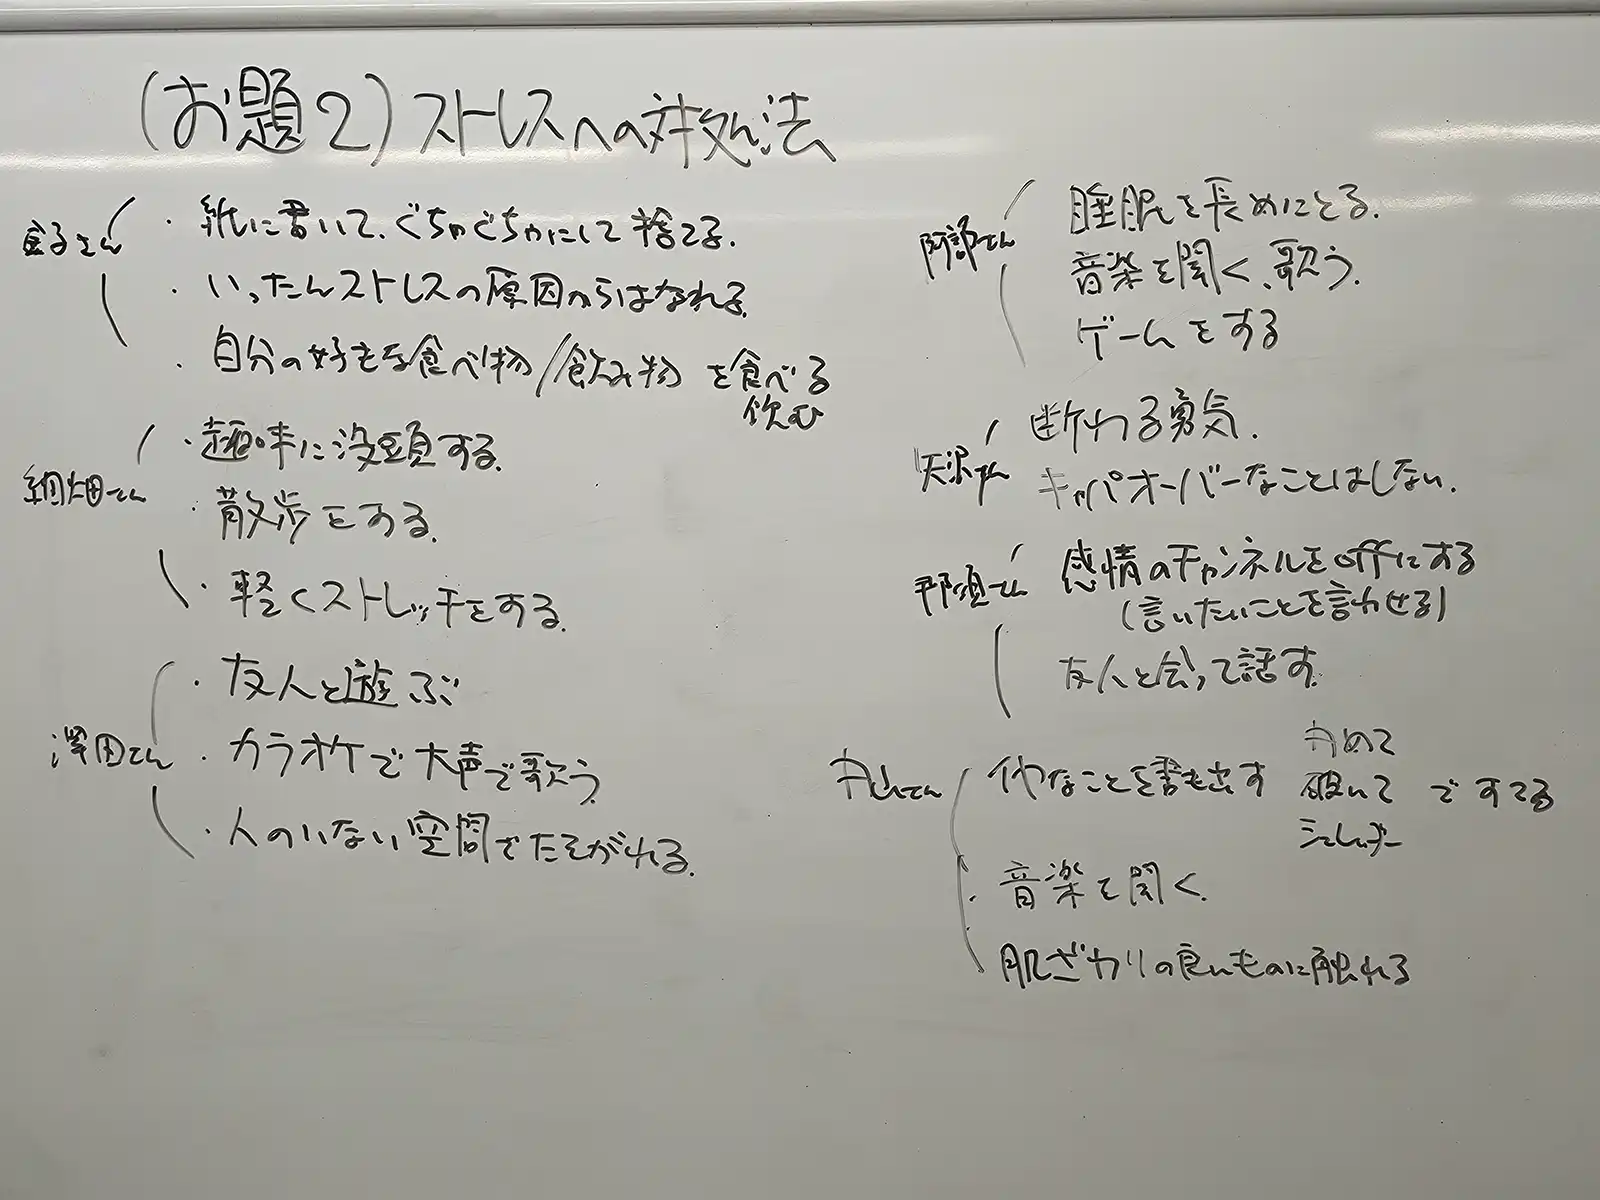 (お題2)ストレスへの対処法
金子さん
・紙に書いて、ぐちゃぐちゃにして捨てる。
・いったんストレスの原因からはなれる。
・自分の好きな食べ物/飲み物を食べる
飲む
網畑さん
・趣味に没頭する。
・散歩をする。
・軽くストレッチをする。
澤田さん
・友人と遊ぶ
・カラオケで大声で歌う
・人のいない空間でたそがれる。
阿部さん
睡眠を長めにとる。
音楽を聞く、歌う。
ゲームをする
天沢さん
断わる勇気。
キャパオーバーなことはしない。
那須さん
感情のチャンネルをoffにする
(言いたいことを言わせる)
友人と会って話す。
丸山さん
イヤなことを書き出す
丸めて
破いて
シュレッダー
ですてる
・音楽を聞く。
肌ざわりの良いものに触れる